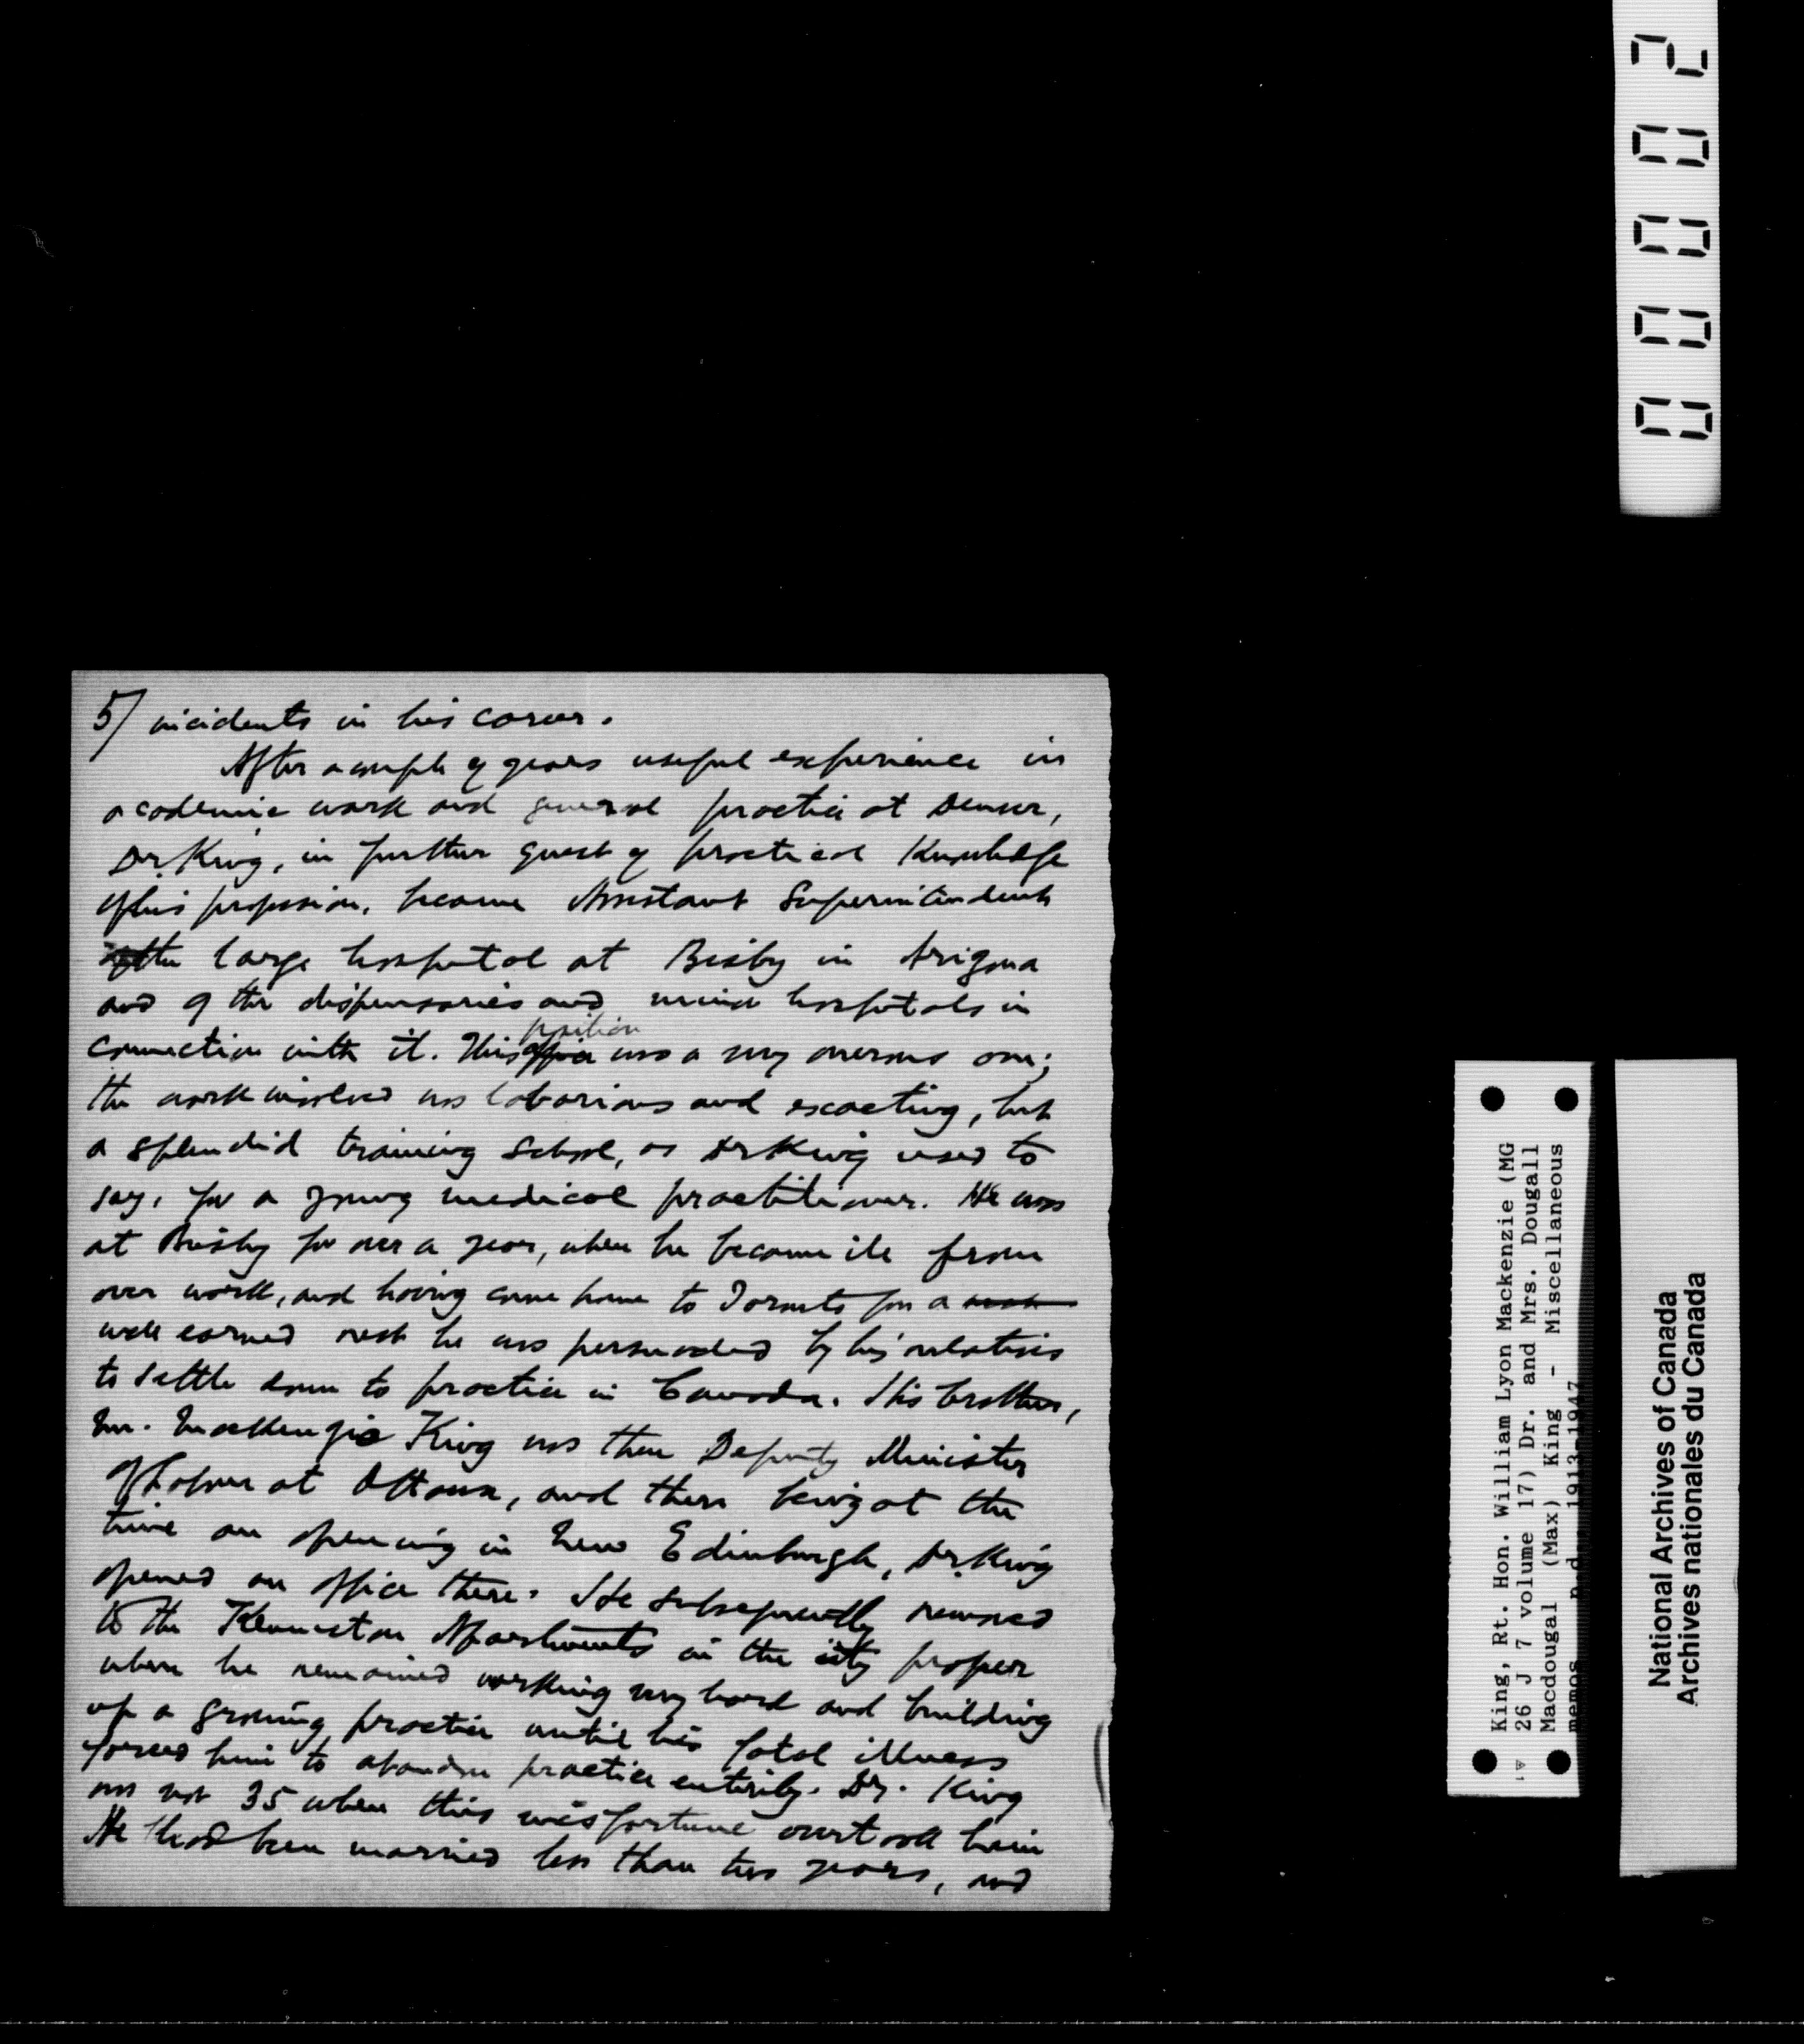 5/ incidents in his career.
After a couple of years useful experience in
academic work and general practice at Denver,
Dr. King, in further quest of practical knowledge
of his profession, became Assistant Superintendent
of the large hospital at Bisby in Arizona
and of the dispensaries and minor hospitals in
connection with it. This office position was a very onerous one;
the work involved was laborious and exacting, but
a splendid training school, as Dr King used to
say, for a young medical practitioner. He was
at Bisby for over a year, when he became ill from
over work, and having come home to Toronto for a rest
well earned rest he was persuaded by his relatives
to settle down to practice in Canada. His brother,
Mr. Mackenzie King was then Deputy Minister
of Labour at Ottawa, and there being at the
time an opening in New Edinburgh, Dr. King
opened an office there. He subsequently removed
to the Kenniston Apartments in the city proper
where he remained working very hard and building
up a growing practice until his fatal illness
forced him to abandon practice entirely. Dr. King
was not 35 when this misfortune overtook him
He had been married less than two years, and
00002
King, Rt. Hon. William Lyon Mackenzie (MG
26 J 7 volume 17) Dr. and Mrs. Dougall
Macdougal (Max) King - Miscellaneous
memos n.d., 1913-1947
National Archives of Canada
Archives nationales du Canada